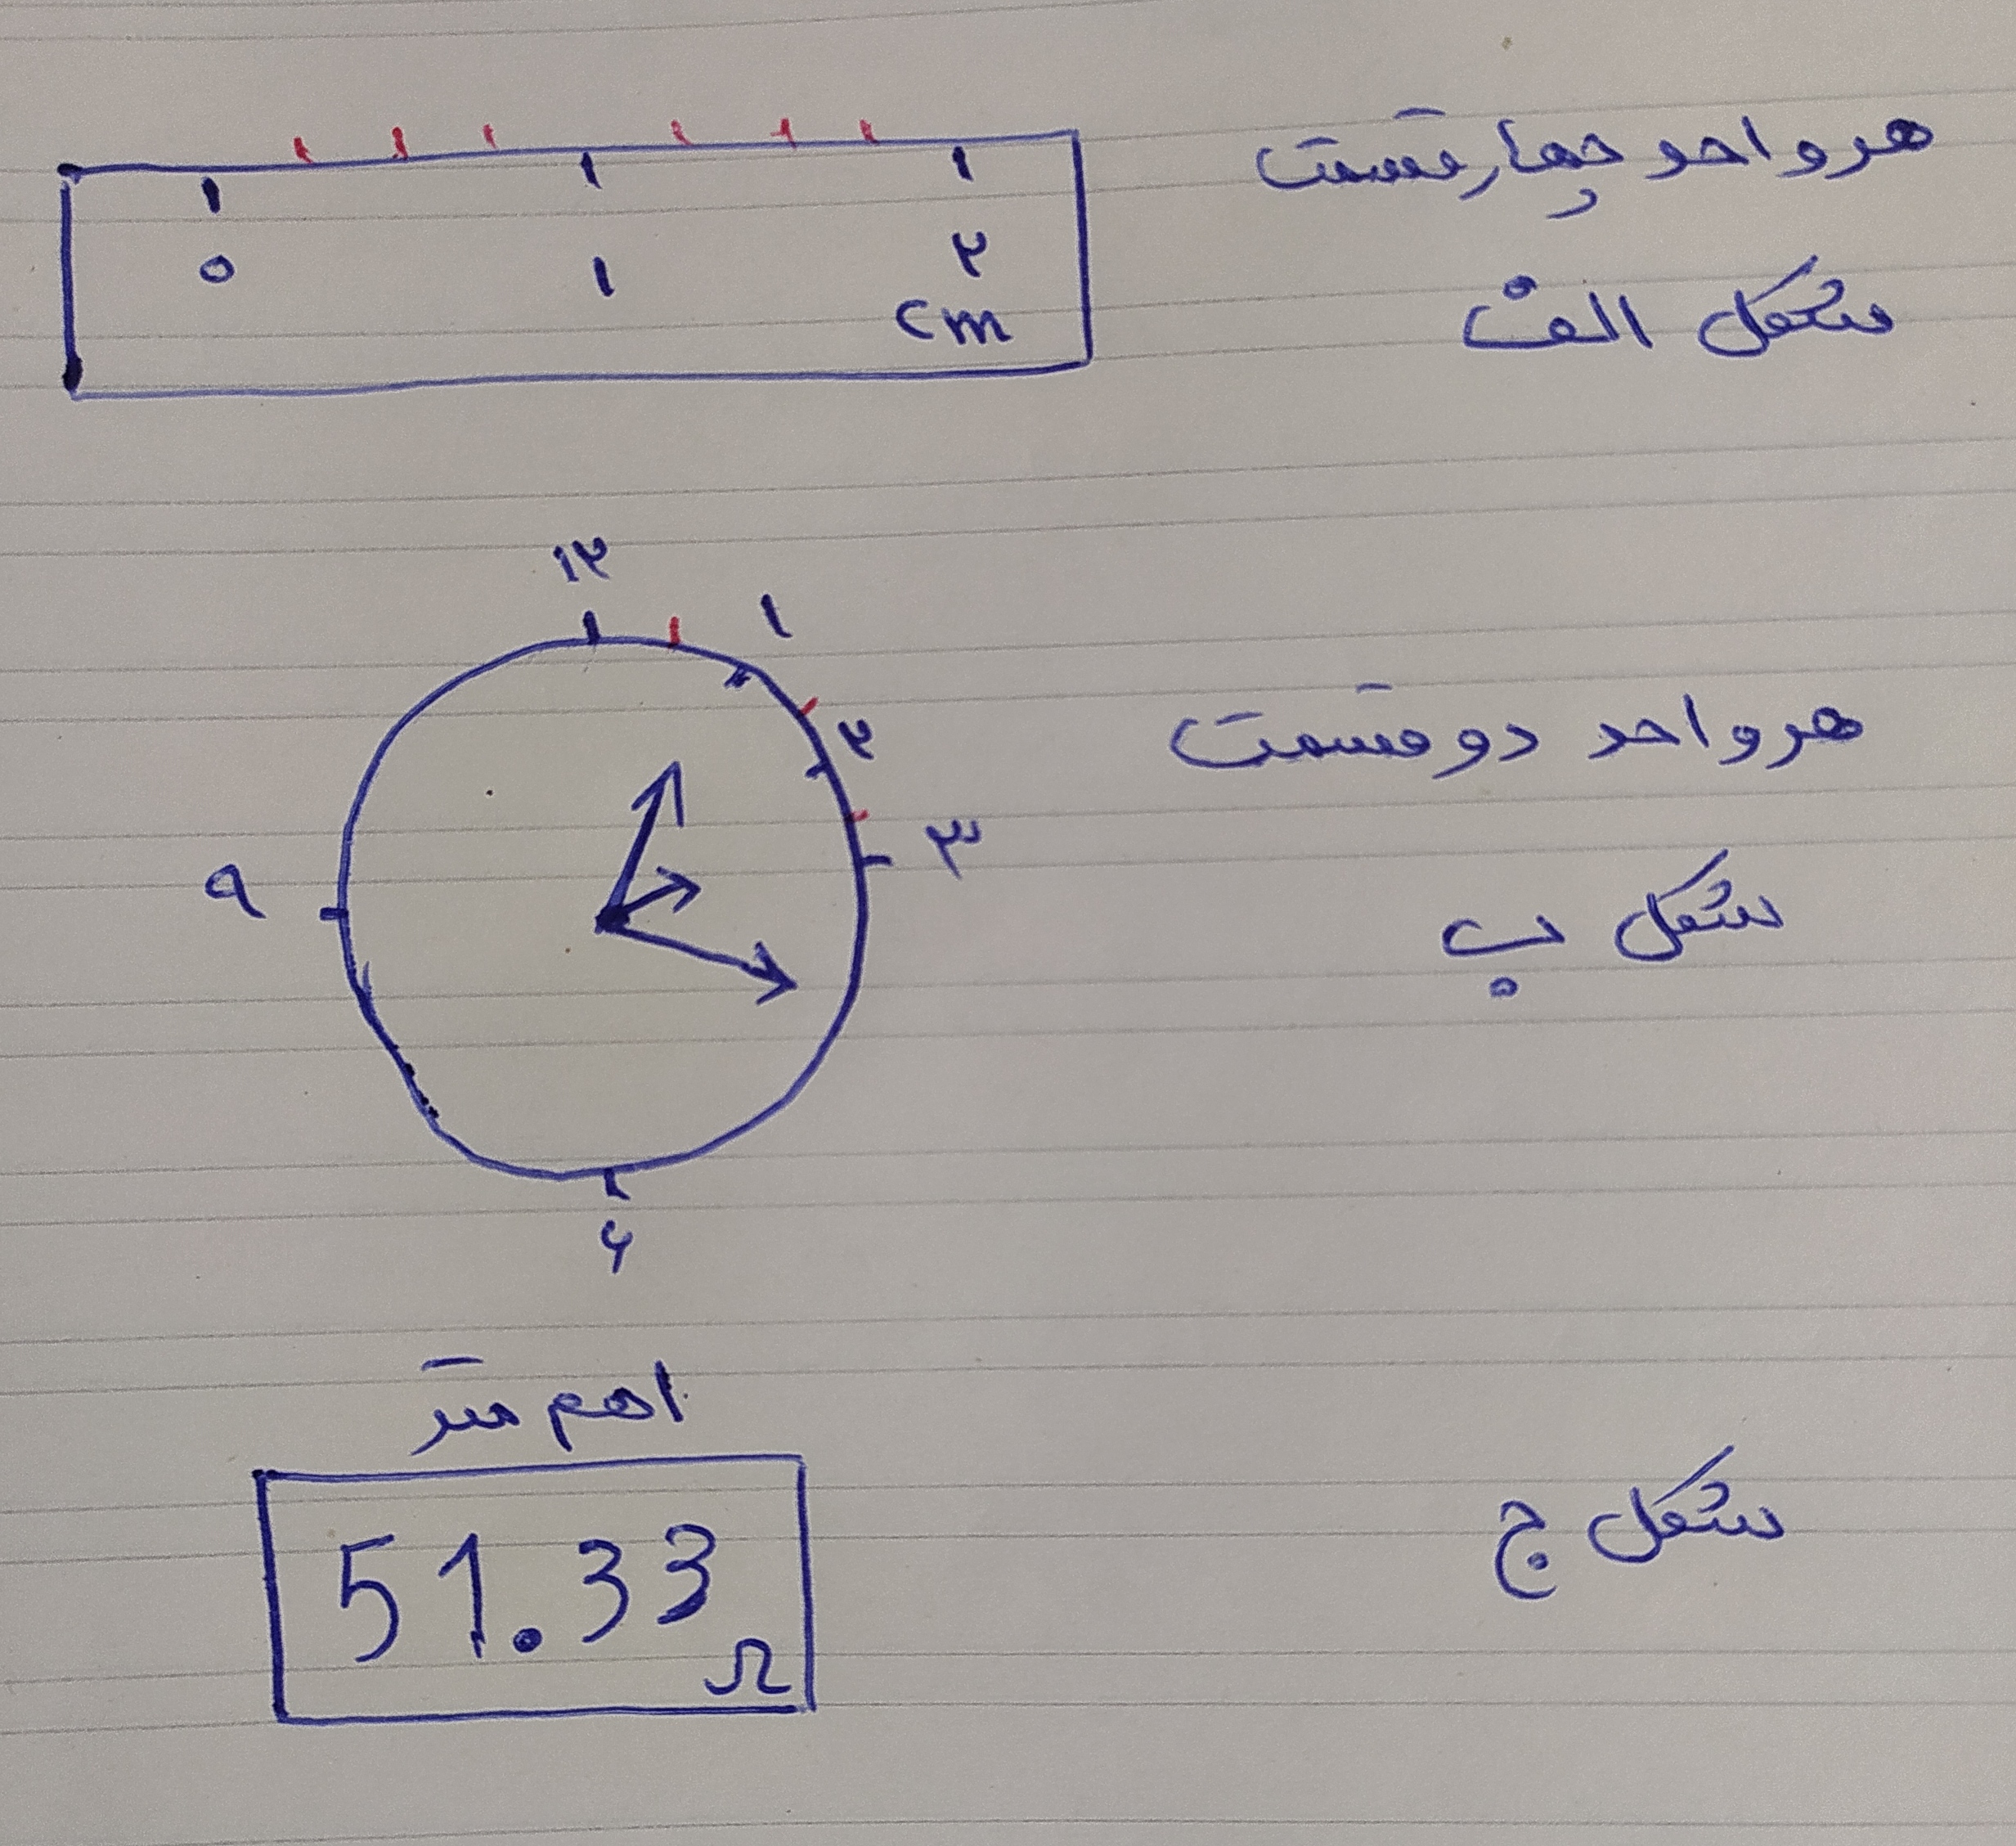 هر واحد چهار قسمت
۰ ۱ ۲
cm
شکل الف
۱۲
۱
۲
۳
هر واحد دو قسمت
۹
شکل ب
۶
اهم متر
51.33
Ω
شکل ج